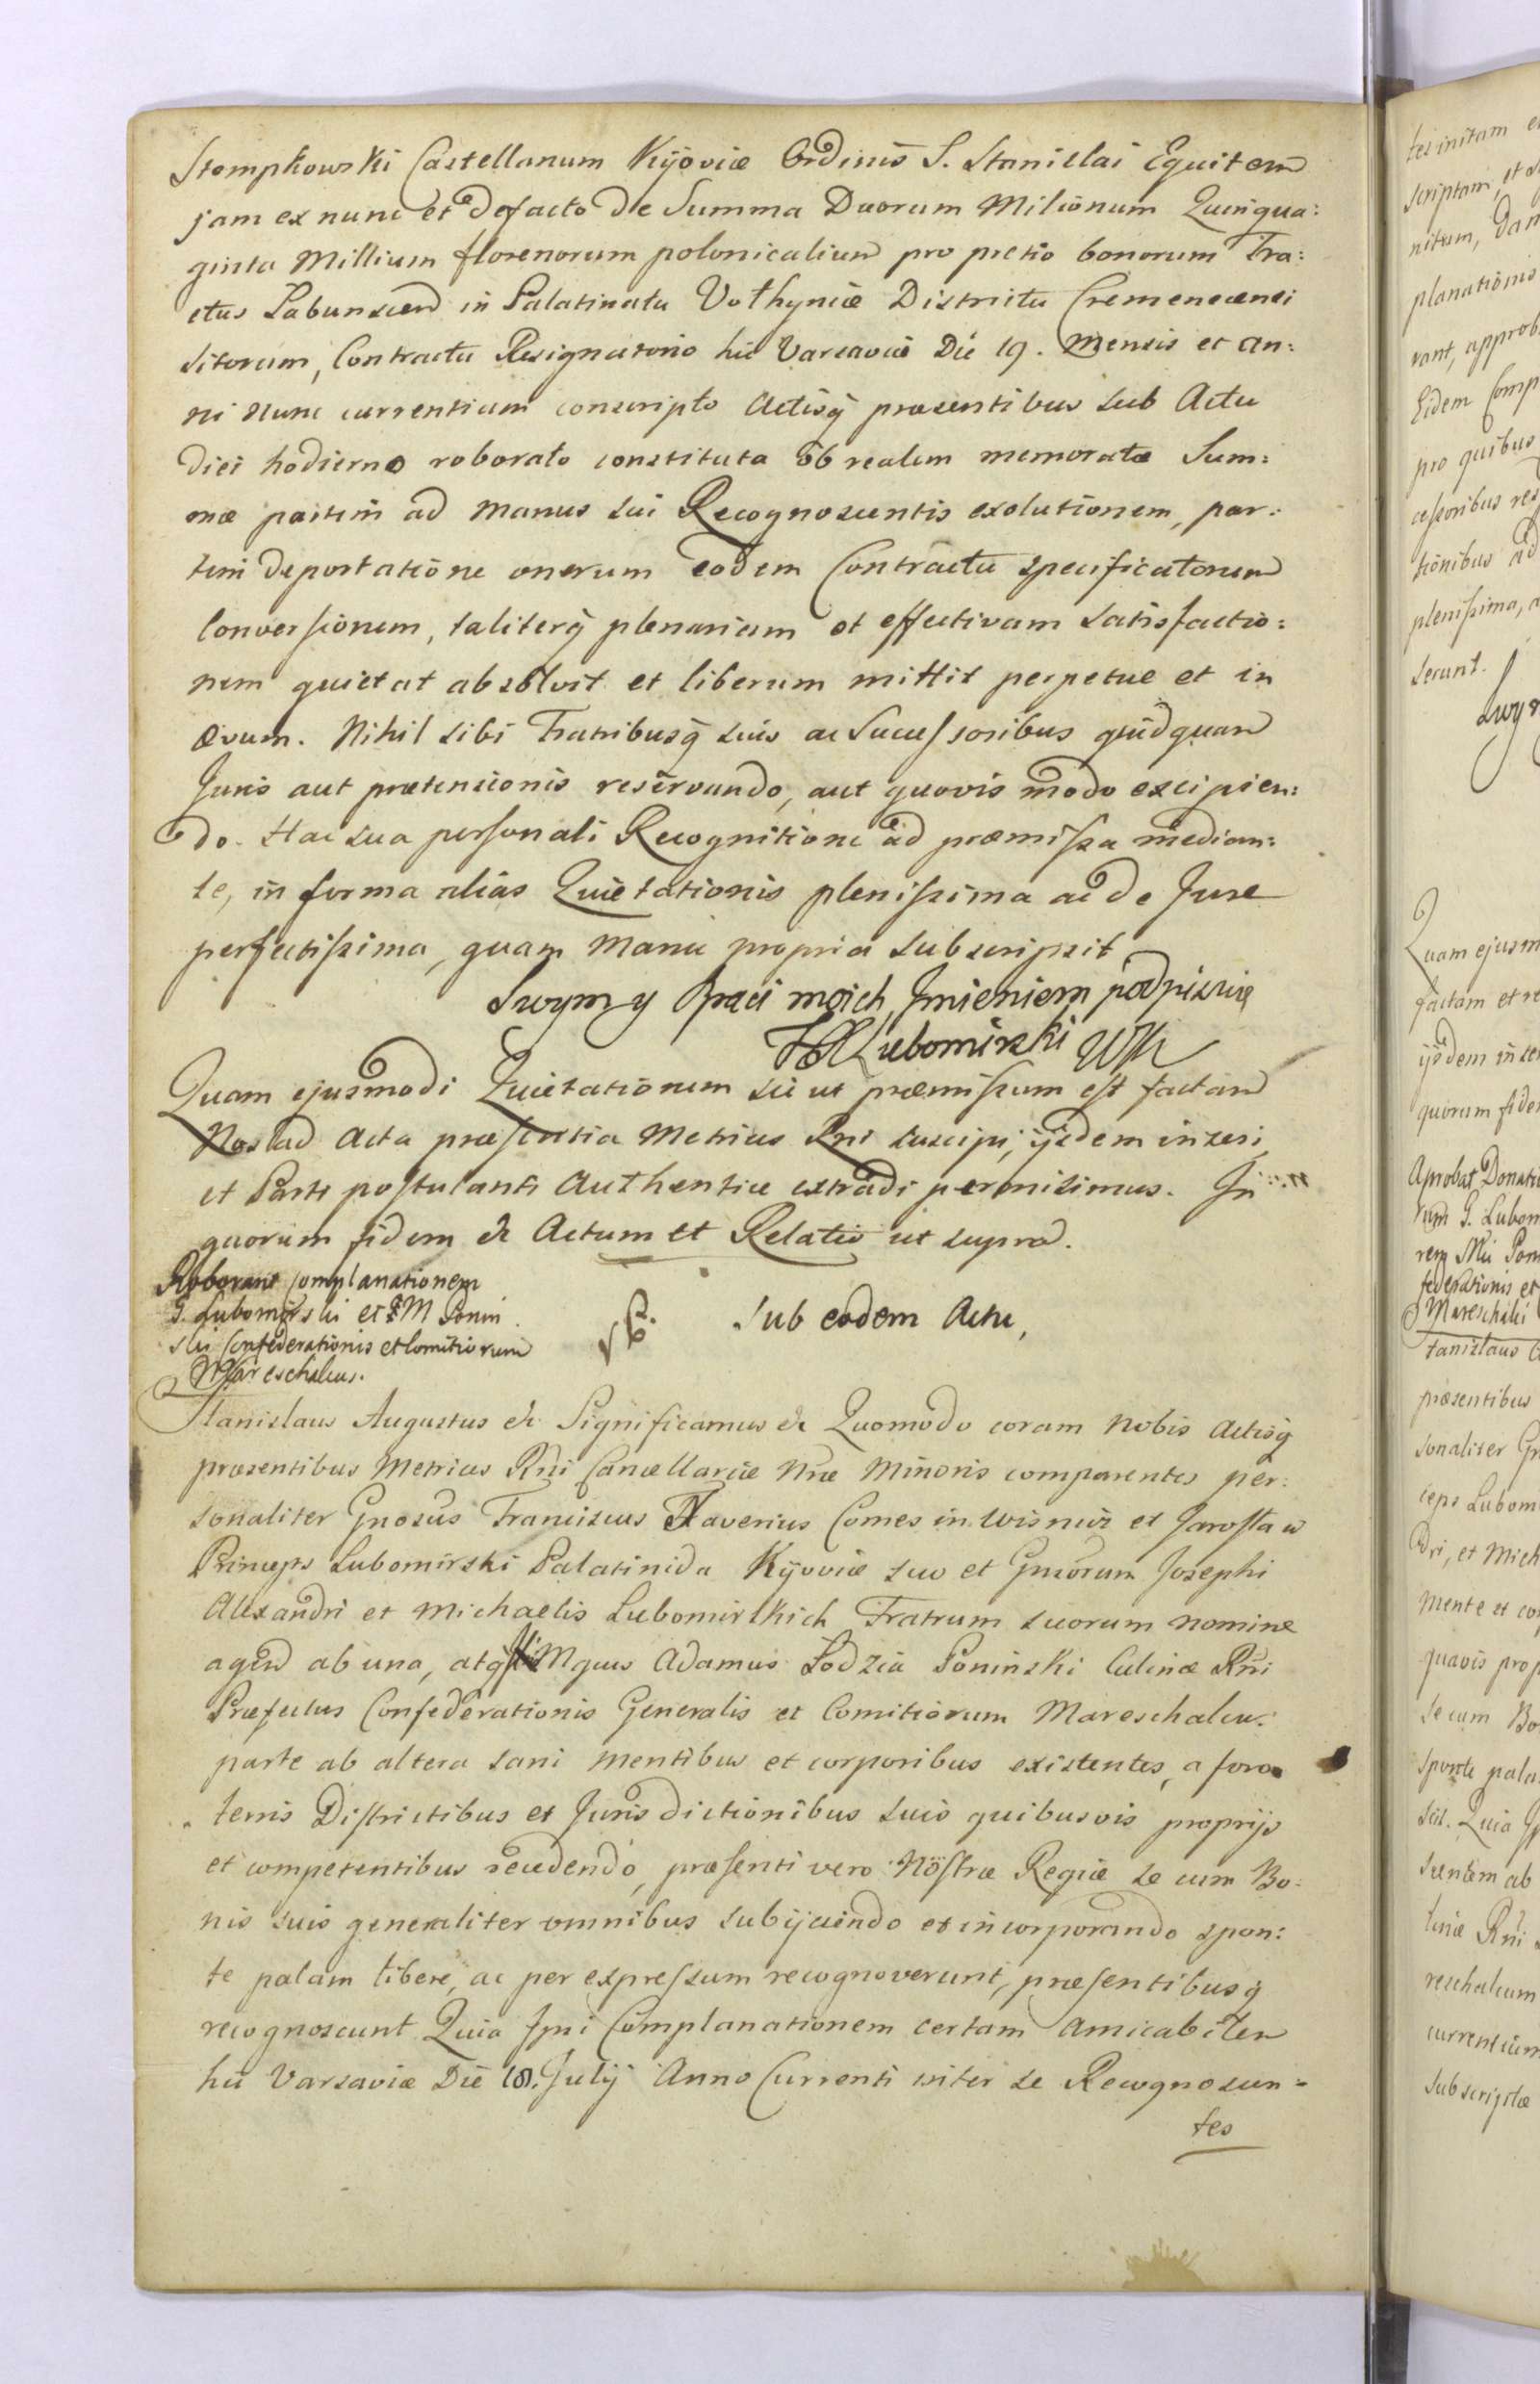 Stempkowski Castellanum Kijoviæ Ordinis S. Stanislai Equitem
jam ex nunc et defacto de Summa Duorum Milionum Quinqua:
ginta Millium florenorum polonicalium pro pretio bonorum Tra:
ctus Łabunscen in Palatinatu Volhyniæ Districtu Cremenecensi
sitorum, Contractu Resignatorio hic Varsaviæ Die 19. Mensis et an:
ni nunc currentium conscripto Actisq̃ præsentibus sub Actu
diei hodierno roborato constituta ob realem memoratæ Sum:
mæ partim ad manus sui Recognoscentis exolutionem, par:
tim deportatione onerum eodem Contractu specificatorum
Conversionem, taliterq̃ plenariam et effectivam satisfactio:
nem quietat absolvit et liberum mittit perpetue et in
ævum. Nihil sibi Fratribusq̃ suis ac Successoribus quidquam
Juris aut prætensionis reservando, aut quovis modo excipien:
do. Hac sua personali Recognitione ad præmissa median:
te, in forma alias Quietationis plenissima ac de Jure
perfectissima, quam manu propria subscripsit
Swym y Braci moich Jmieniem podpisuię
Lubomirski
Quam ejusmodi Quietationem sic ut præmissum est factam
Nos ad Acta præsentia Metrices Rni suscipi, ijsdem inseri,
et Parti postulanti Authentice extradi permisimus. In
quorum fidem &c Actum et Relatio ut supra.
Roborant complanationem
G. Lubomirski et M Ponin
ski Confederationis et Comitiorum
Mareschalcus.
Sub eodem Actu,
Stanislaus Augustus &c Significamus &c Quomodo coram nobis Actisq̃
præsentibus Metrices Rni Cancellariæ Nræ Minoris comparentes per:
sonaliter Gnosus Franciscus Xaverius Comes in Wisnicz et Jarosław
Princeps Lubomirski Palatinida Kijoviæ suo et Gnsorum Josephi
Alexandri et Michaelis Lubomirskich Fratrum suorum nomine
agen ab una, atq̃ Mgcus Adamus Łodzia Poninski Culinæ Rni
Præfectus Confederationis Generalis et Comitiorum Mareschalcus
parte ab altera sani mentibus et corporibus existentes, a foro
terris Districtibus et Jurisdictionibus suis quibusvis proprijs
et competentibus recedendo, præsenti vero Nostræ Regiæ se cum Bo:
nis suis generaliter omnibus subijciendo et incorporando spon:
te palam libere, ac per expressum recognoverunt, præsentibusq̃
recognoscunt Quia Ipsi Complanationem certam amicabiliter
hic Varsaviæ Die 18. Julij Anno Currenti inter se Recognoscen=
tes